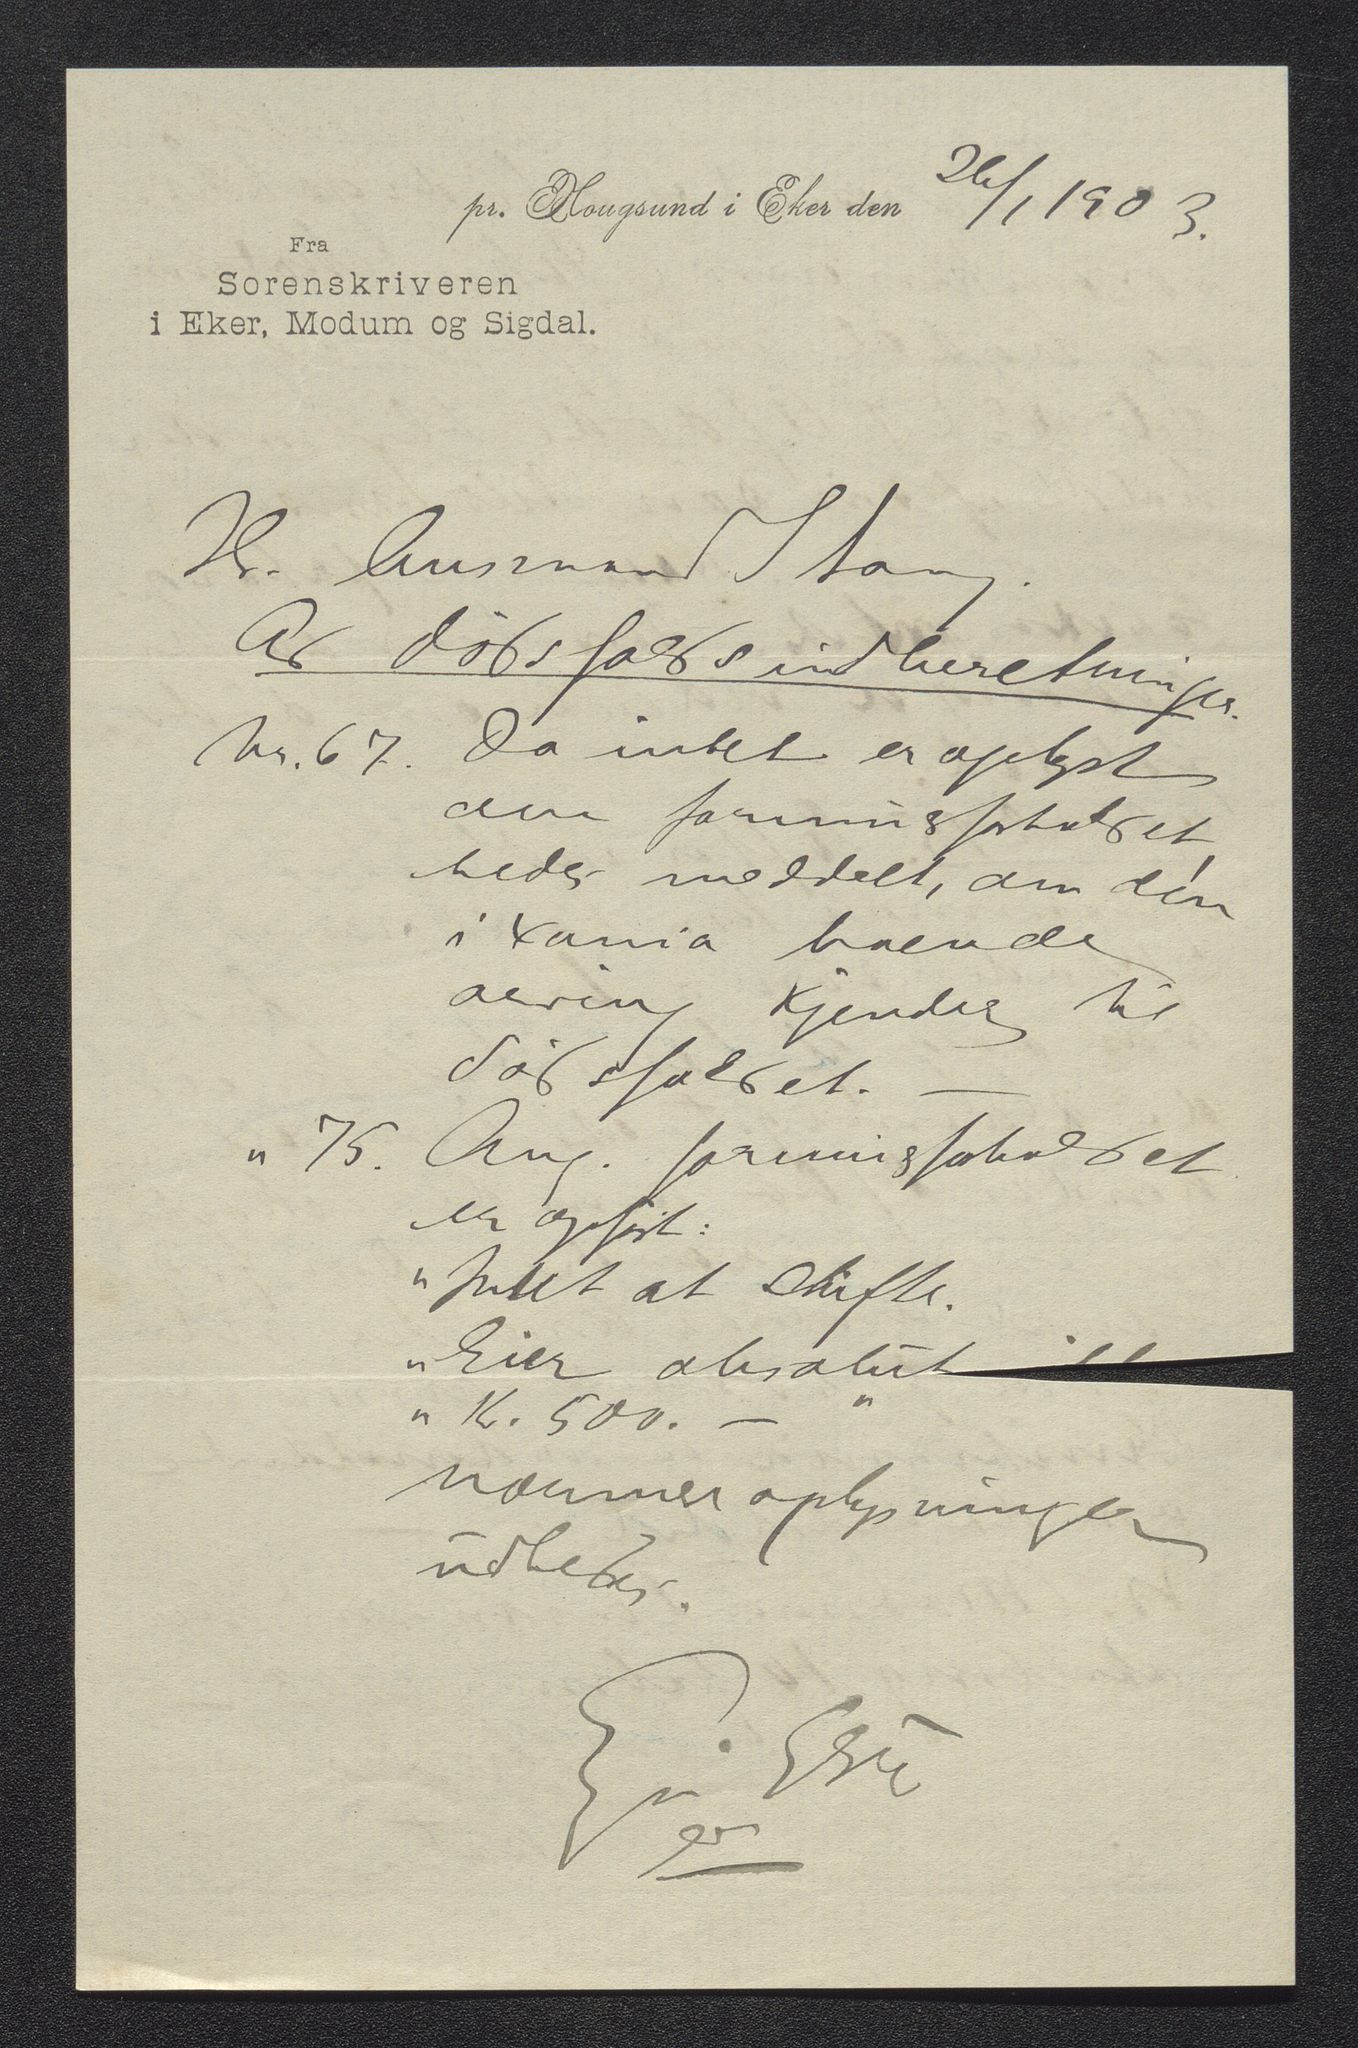 pr. Hougsund i Eker den 26/1 1903.
Fra
Sorenskriveren
i Eker, Modum og Sigdal.
Hr. Lensmand Stang.
Ad dødsfaldsindberetninger.
Nr. 67. Da intet er oplyst
om formuesforholdet
bedes meddelt, om den
i Xania boende
arving kjendes til
dødsfaldet. —
" 75. Ang. formuesforholdet
er opført:
" Intet at skifte.
" Eier absolut
" Kr. 500. — "
Nærmere oplysninger
udbedes.